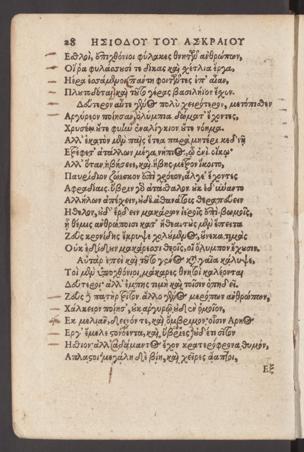 28 ΗΣΙΟΔΟΥ ΤΟΥ ΑΣΚΡΑΙΟΥ
Εσθλοὶ, ἐπιχθόνιοι φύλακες θνητῶν ἀνθρώπων,
Οἵ ῥα φυλάσσουσί τε δίκας καὶ σχέτλια ἔργα,
Ηέρα ἑσσάμενοι πάντη φοιτῶντες ἐπ' αἶαν,
Πλουτοδόται, καὶ τοῦτο γέρας βασιλήϊον ἔχον.
Δεύτερον αὖτε γένος πολὺ χειρότερον, μετόπισθεν
Αργύρεον ποίησαν, ὀλύμπια δώματ' ἔχοντες,
Χρυσέῳ οὔτε φυὴν ἐναλίγκιον οὔτε νόημα.
Αλλ' ἑκατὸν μὲν παῖς ἔτεα παρὰ μητέρι κεδνῇ
Ετρέφετ' ἀτάλλων μέγα νήπιος, ᾧ ἐνὶ οἴκῳ
Αλλ' ὅταν ἡβήσειε, καὶ ἥβης μέτρον ἵκοιτο,
Παυρίδιον ζώεσκον ἐπὶ χρόνον, ἄλγε' ἔχοντες
Αφραδίαις. ὕβριν γὰρ ἀτάσθαλον οὐκ ἐδύναντο
Αλλήλων ἀπέχειν, οὐδ' ἀθανάτοις θεραπεύειν
Ηθελον, οὐδ' ἔρδειν μακάρων ἱεροῖς ἐπὶ βωμοῖς,
ᾗ θέμις ἀνθρώποισι κατ' ἤθεα. τοὺς μὲν ἔπειτα
Ζεὺς κρονίδης ἔκρυψε χολούμενος, οὕνεκα τιμὰς
Οὐκ ἐδίδουν μακάρεσσι θεοῖς, οἳ ὄλυμπον ἔχουσιν.
Αὐτὰρ ἐπεὶ καὶ τοῦτο γένος κατὰ γαῖα κάλυψε,
Τοὶ μὲν ὑποχθόνιοι μάκαρες θνητοὶ καλέονται
Δεύτεροι· ἀλλ' ἔμπης τιμὴ καὶ τοῖσιν ὀπηδεῖ.
Ζεὺς δὲ πατὴρ τρίτον ἄλλο γένος μερόπων ἀνθρώπων,
Χάλκειον ποίησ', οὐκ ἀργυρῷ οὐδὲν ὁμοῖον,
Εκ μελιᾶν, δεινόν τε, καὶ ὄμβριμον· οἷσιν ἄρηος
Εργ' ἔμελε στονόεντα, καὶ ὕβριες· οὐδέ τι σῖτον
Ησθιον· ἀλλ' ἀδάμαντος ἔχον κρατερόφρονα θυμὸν,
Απλαστοι· μεγάλη δὲ βίη, καὶ χεῖρες ἄαπτοι,
Εξ